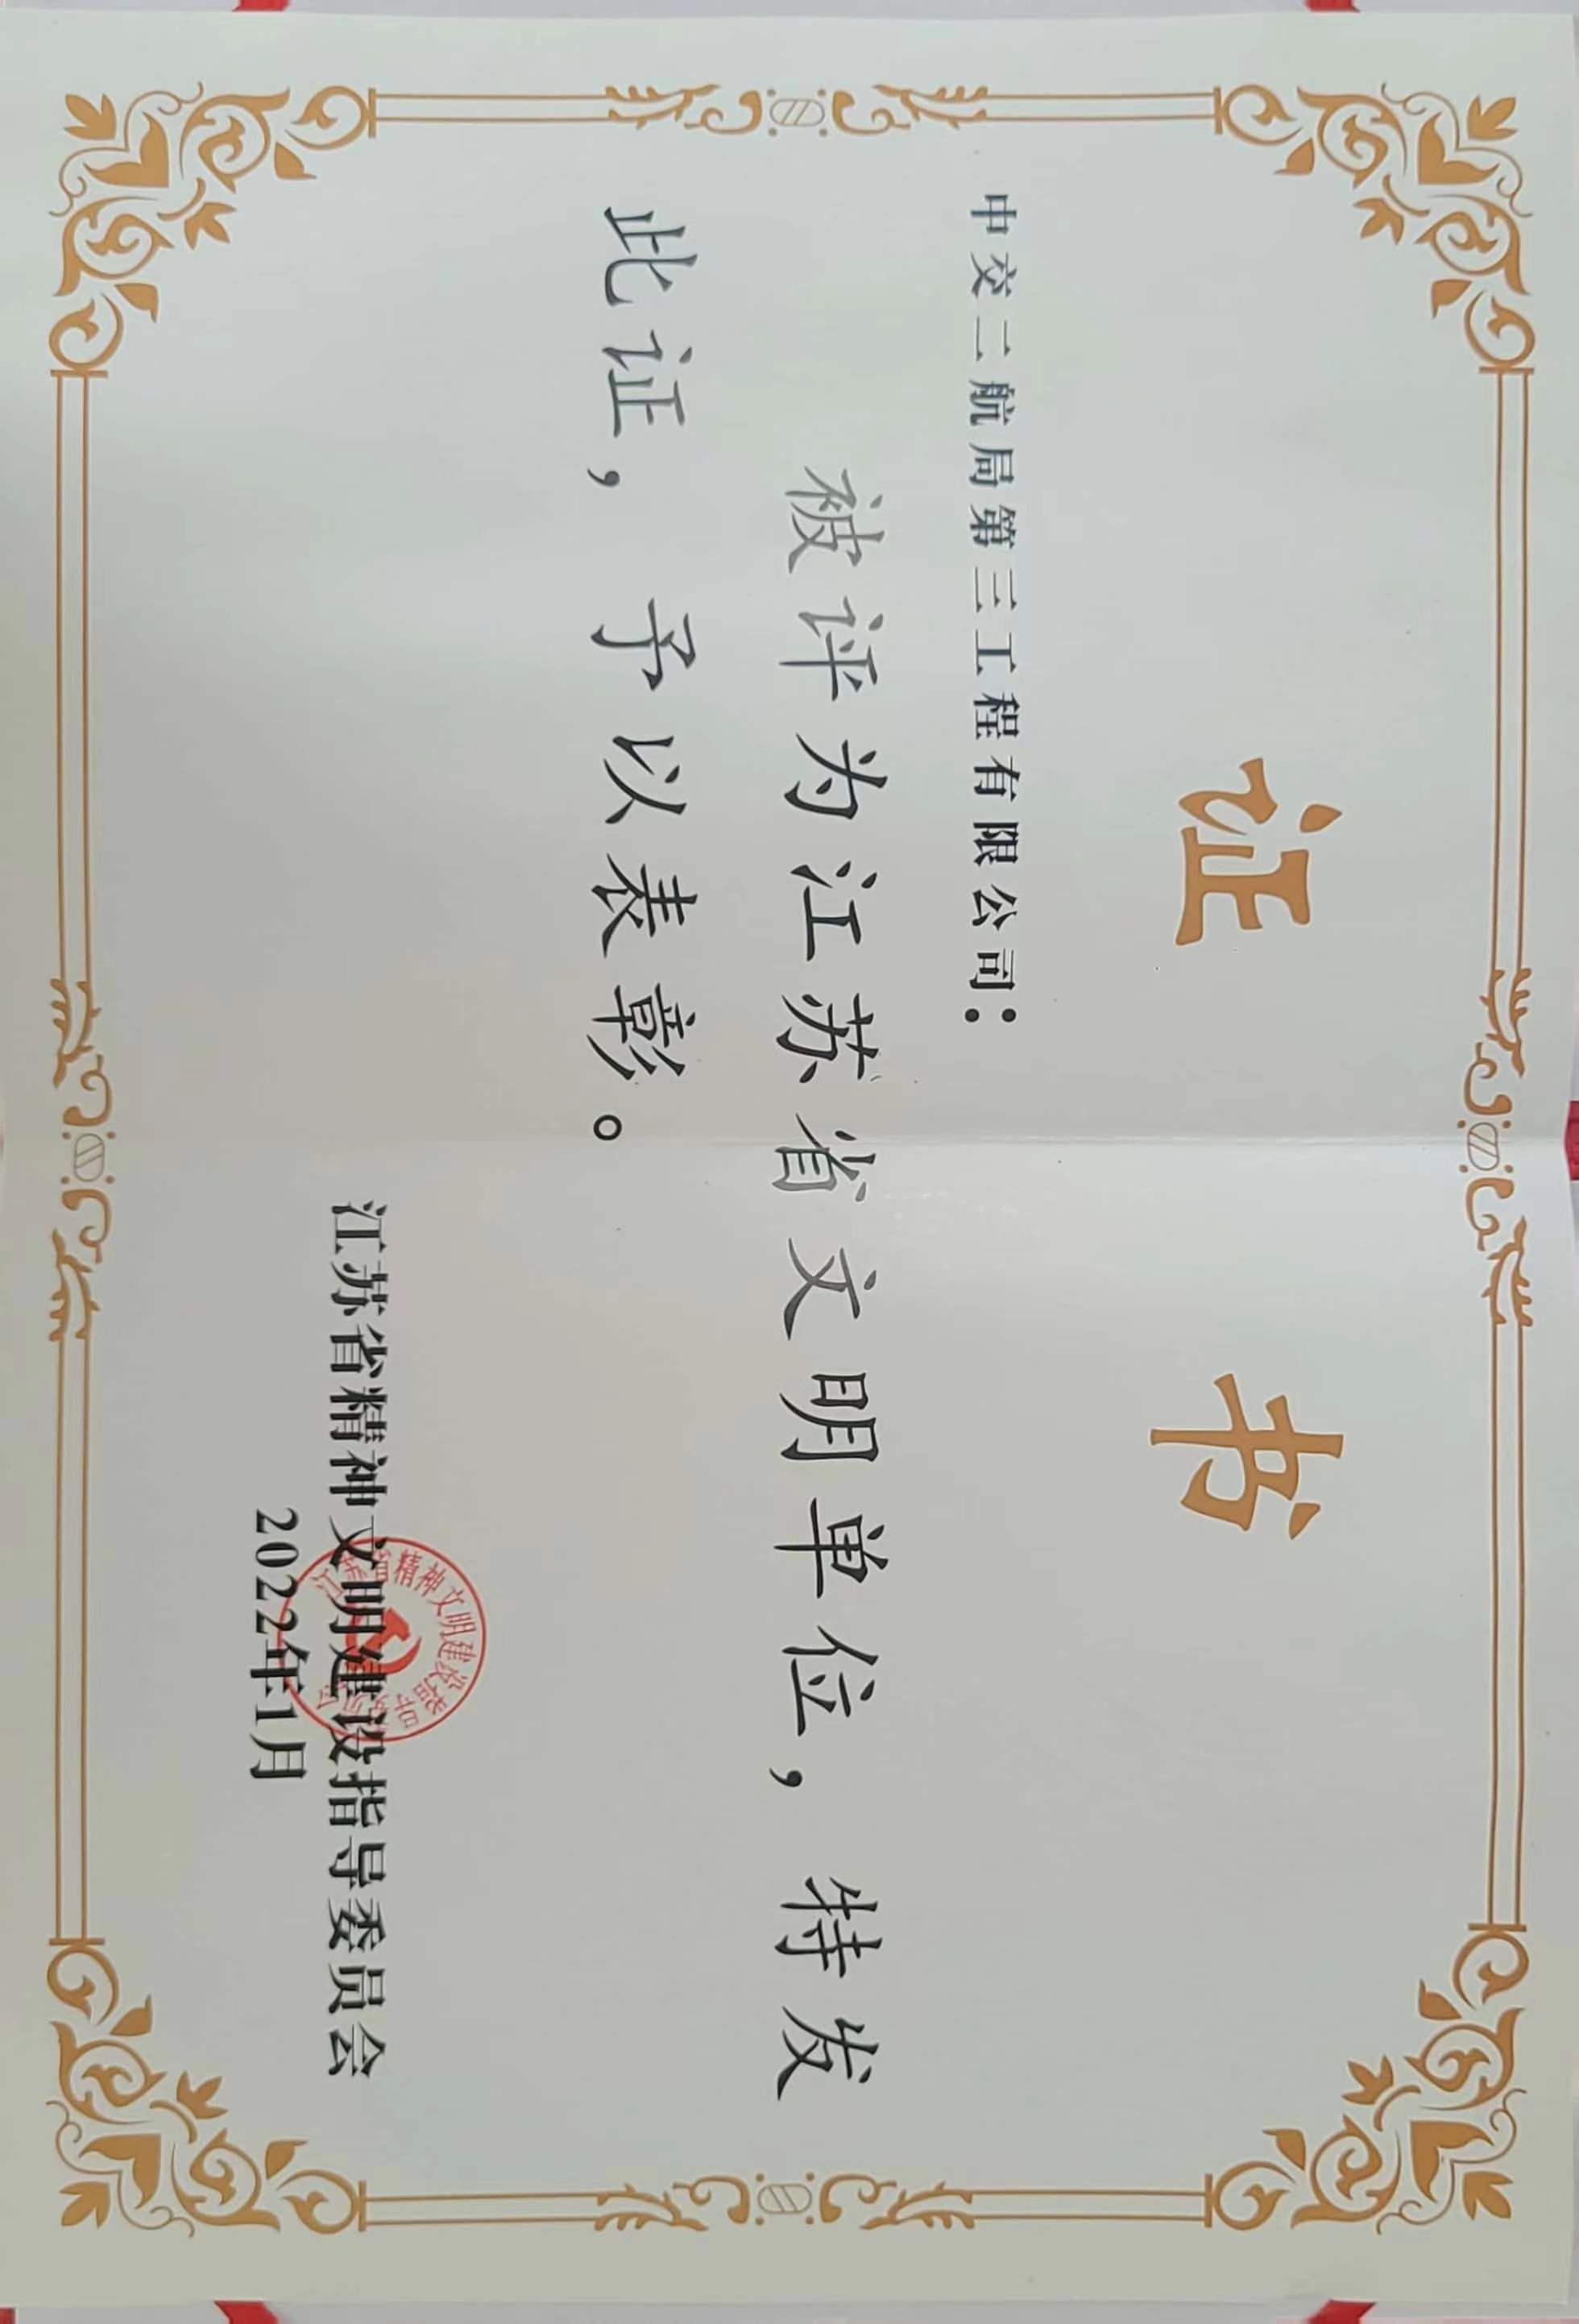 证书
中交二航局第三工程有限公司：
被评为江苏省文明单位，特发
此证，予以表彰。
江苏省精神文明建设指导委员会
2022年1月
江苏省精神文明建设指导委员会